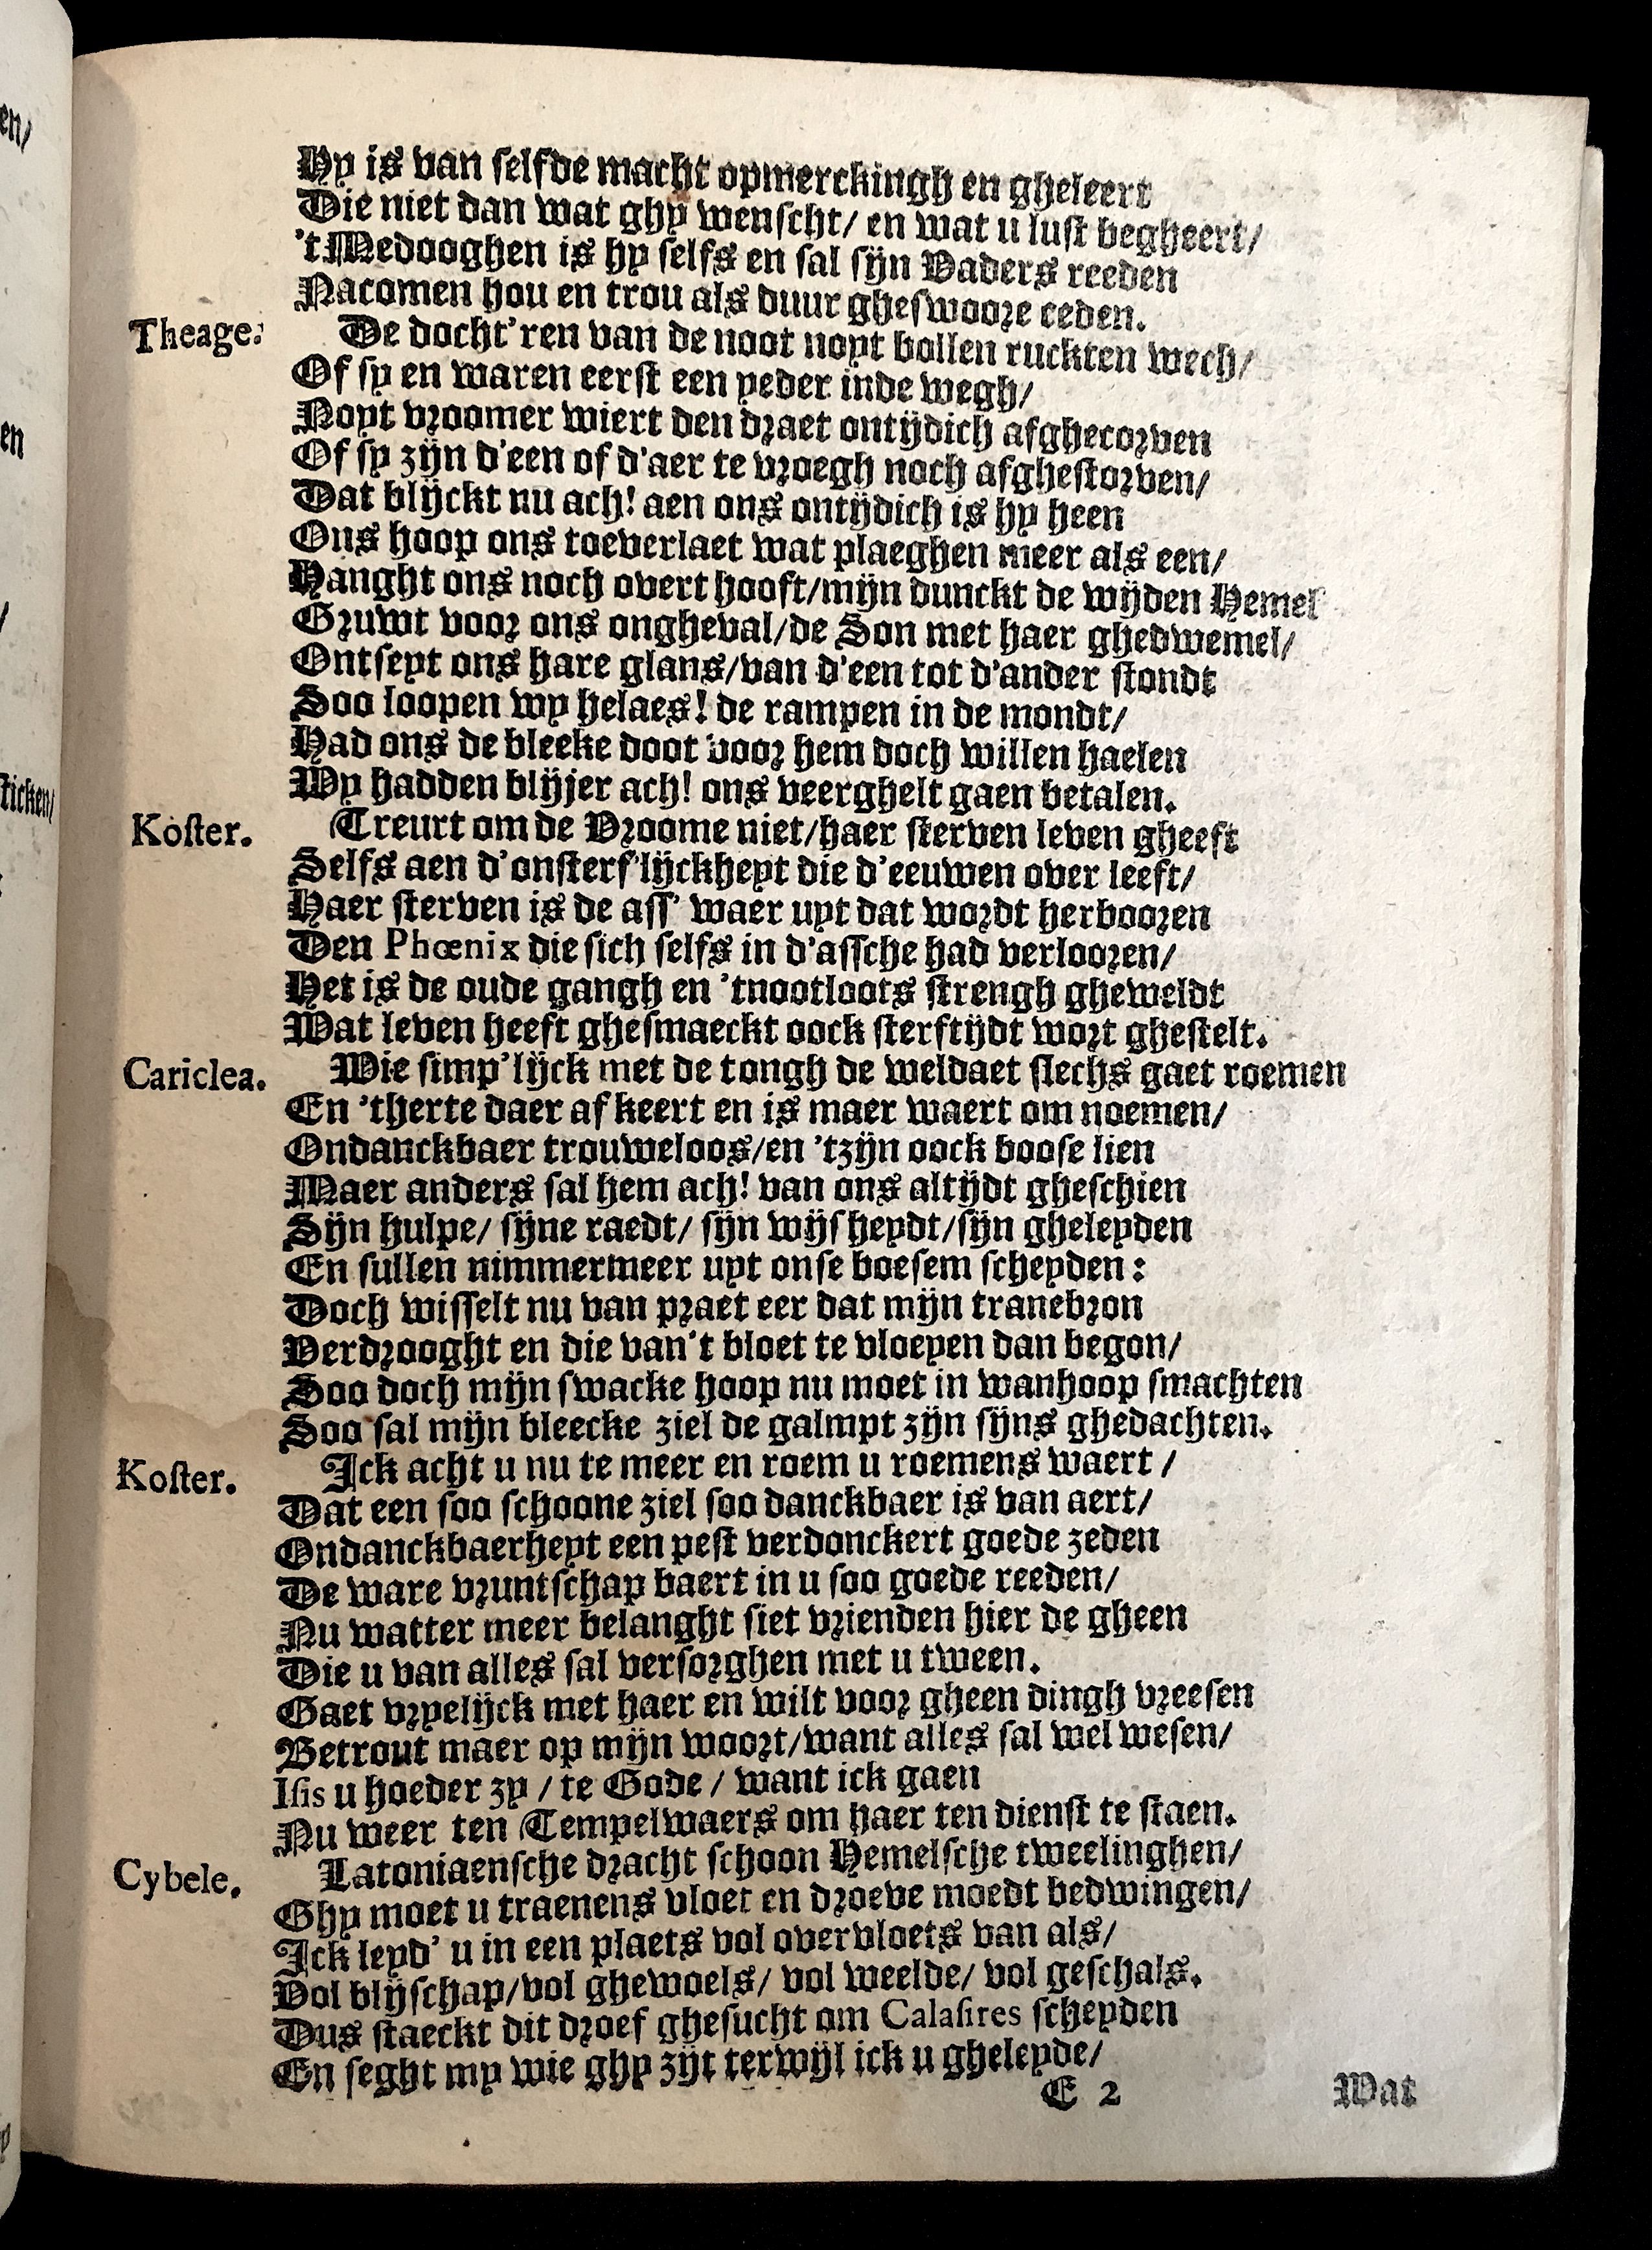 Hy is van selfde macht opmerckingh en gheleert
Die niet dan wat ghy wenscht/ en wat u lust begheert/
't Medooghen is hy selfs en sal sijn Vaders reeden
Nacomen hou en trou als duur gheswoore eeden.
Theage. De docht'ren van de noot noyt bollen ruckten wech/
Of sy en waren eerst een yeder inde wegh/
Noyt vroomer wiert den draet ontijdich afghecorven
Of sy zijn d'een of d'aer te vroegh noch afghestorven/
Dat blijckt nu ach! aen ons ontijdich is hy heen
Ons hoop ons toeverlaet wat plaeghen meer als een/
Hanght ons noch overt hooft/mijn dunckt de wijden Hemel
Gruwt voor ons ongheval/de Son met haer ghedwemel/
Ontseyt ons hare glans/van d'een tot d'ander stondt
Soo loopen wy helaes! de rampen in de mondt/
Had ons de bleeke doot voor hem doch willen haelen
Wy hadden blijjer ach! ons veerghelt gaen betalen.
Koster. Treurt om de Vroome niet/haer sterven leven gheeft
Selfs aen d'onsterf'lijckheyt die d'eeuwen over leeft/
Haer sterven is de ass' waer uyt dat wordt herbooren
Den Phœnix die sich selfs in d'assche had verlooren/
Het is de oude gangh en 'tnootloots strengh gheweldt
Wat leven heeft ghesmaeckt oock sterftijdt wort ghestelt.
Cariclea. Wie simp'lijck met de tongh de weldaet slechs gaet roemen
En 'therte daer af keert en is maer waert om noemen/
Ondanckbaer trouweloos/en 'tzijn oock boose lien
Maer anders sal hem ach! van ons altijdt gheschien
Sijn hulpe/ sijne raedt/ sijn wijsheydt/sijn gheleyden
En sullen nimmermeer uyt onse boesem scheyden:
Doch wisselt nu van praet eer dat mijn tranebron
Verdrooght en die van't bloet te vloeyen dan begon/
Soo doch mijn swacke hoop nu moet in wanhoop smachten
Soo sal mijn bleecke ziel de galmpt zijn sijns ghedachten.
Koster. Ick acht u nu te meer en roem u roemens waert /
Dat een soo schoone ziel soo danckbaer is van aert/
Ondanckbaerheyt een pest verdonckert goede zeden
De ware vruntschap baert in u soo goede reeden/
Nu watter meer belanght siet vrienden hier de gheen
Die u van alles sal versorghen met u tween.
Gaet vryelijck met haer en wilt voor gheen dingh vreesen
Betrout maer op mijn woort/want alles sal wel wesen/
Isis u hoeder zy / te Gode / want ick gaen
Nu weer ten Tempelwaers om haer ten dienst te staen.
Cybele. Latoniaensche dracht schoon Hemelsche tweelinghen/
Ghy moet u traenens vloet en droeve moedt bedwingen/
Ick leyd' u in een plaets vol overvloets van als/
Vol blijschap/vol ghewoels/ vol weelde/ vol geschals.
Dus staeckt dit droef ghesucht om Calasires scheyden
En seght my wie ghy zijt terwijl ick u gheleyde/
E 2 Wat
en/
en
/
sticken/